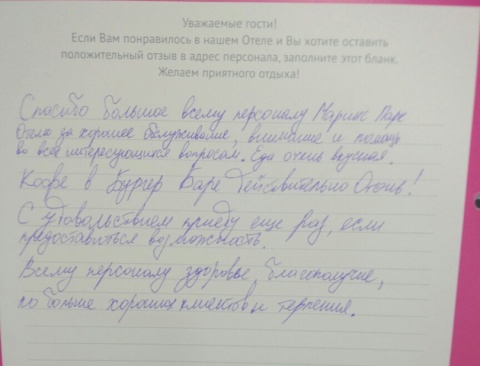 Уважаемые гости!
Если Вам понравилось в нашем Отеле и Вы хотите оставить
положительный отзыв в адрес персонала, заполните этот бланк.
Желаем приятного отдыха!
Спасибо большое всему персоналу Маринс Парк
Отеля за хорошее обслуживание, внимание и помощь
во всех интересующихся вопросам. Еда очень вкусная.
Кофе в Бургер Баре Действительно Огонь!
С удовольствием приеду еще раз, если
предоставиться возможность.
Всему персоналу здоровье, благополучие,
по больше хороших клиентов и терпения.